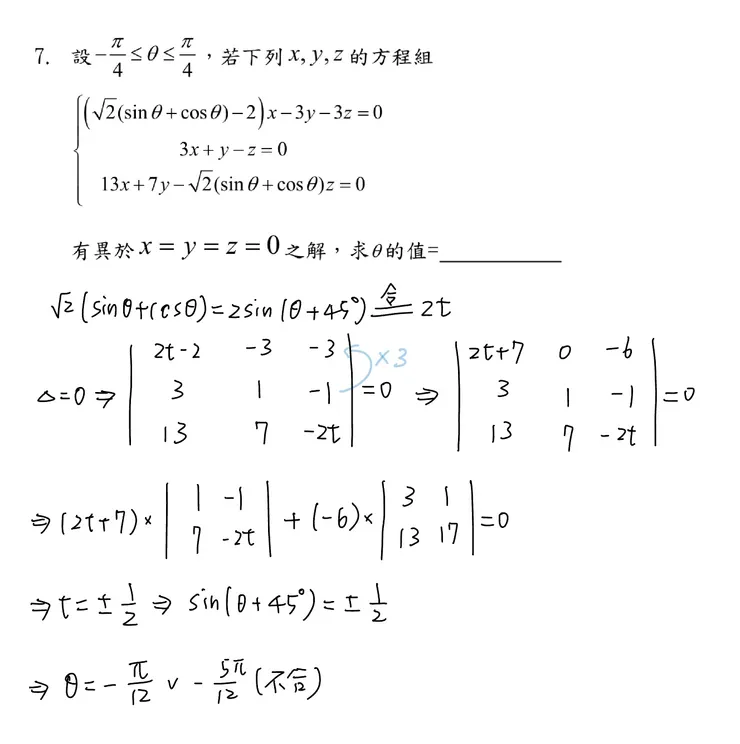 7. 設 -π/4 ≤ θ ≤ π/4,若下列 x, y, z 的方程組
(√2(sin θ + cos θ) - 2)x - 3y - 3z = 0
3x + y - z = 0
13x + 7y - √2(sin θ + cos θ)z = 0
有異於 x = y = z = 0 之解,求θ的值=__________
√2(sinθ+cosθ)=2sin(θ+45°) 令= 2t
△=0 ⇒ | 2t-2 -3 -3 | =0 ⇒ | 2t+7 0 -6 | =0
| 3 1 -1 | ×3 | 3 1 -1 |
| 13 7 -2t | | 13 7 -2t |
⇒ (2t+7)× | 1 -1 | + (-6)× | 3 1 | =0
| 7 -2t | | 13 17 |
⇒ t = ± 1/2 ⇒ sin(θ+45°) = ± 1/2
⇒ θ = - π/12 ∨ - 5π/12 (不合)